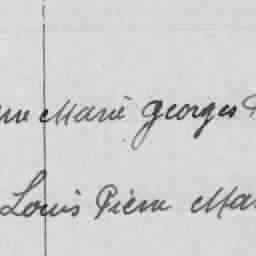 Marie Georges
Louis Pierre Ma